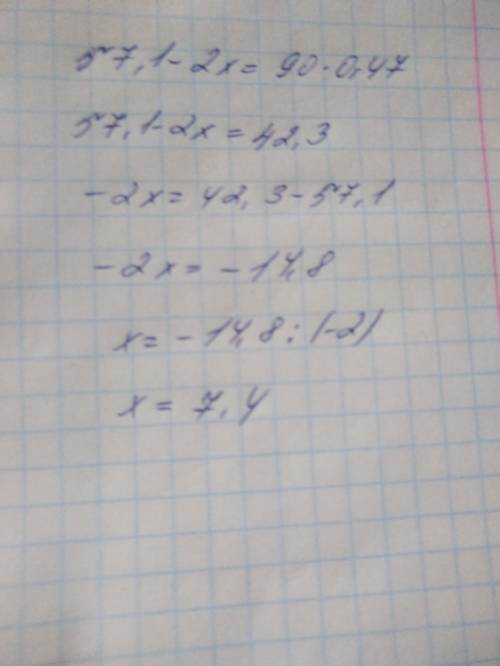 57,1-2x= 90·0,47
57,1-2x=42,3
-2x= 42,3-57,1
-2x= -14,8
x= -14,8:(-2)
x= 7,4